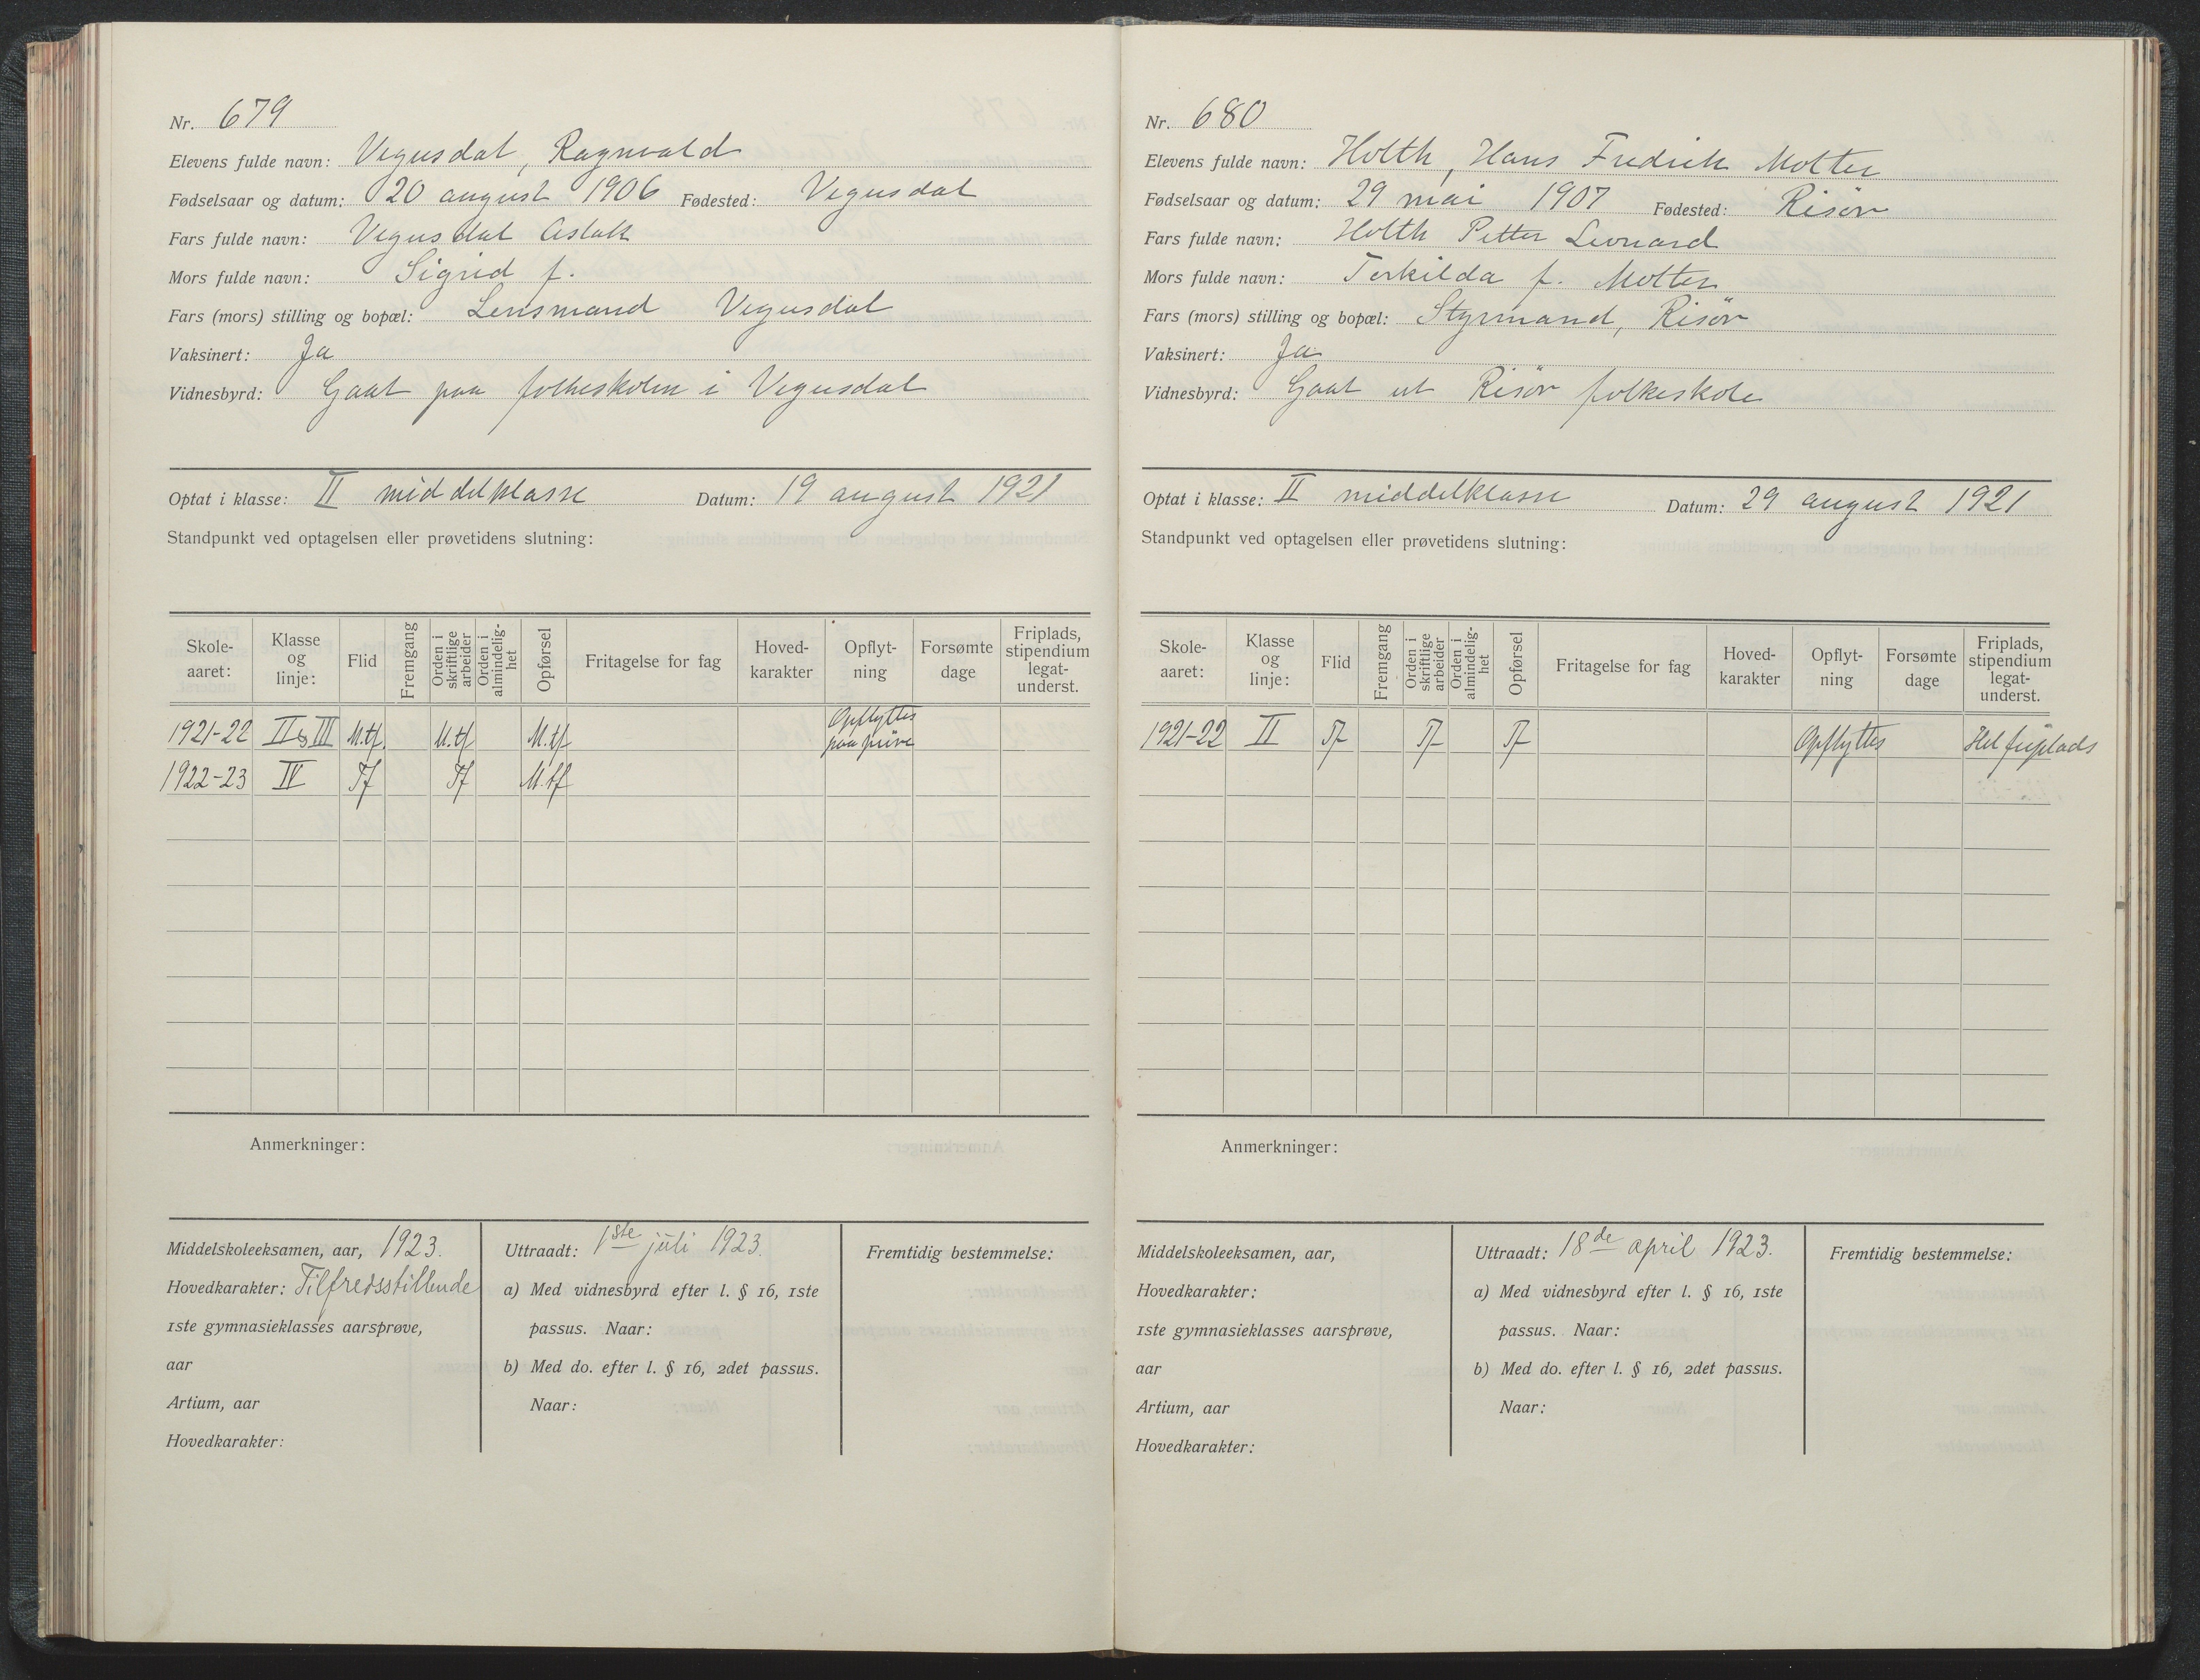 Nr. 679
Elevens fulde navn: Vegusdal, Ragnvald
Fødselsaar og datum: 20 august 1906 Fødested: Vegusdal
Fars fulde navn: Vegusdal Aslak
Mors fulde navn: Sigrid f.
Fars (mors) stilling og bopæl: Lensmand Vegusdal
Vaksinert: Ja
Vidnesbyrd: Gaat paa folkeskolen i Vegusdal
Optat i klasse: II middelklasse Datum: 19 august 1921
Standpunkt ved optagelsen eller prøvetidens slutning:
Skole-aaret: Klasse og linje: Flid Fremgang Orden i skriftlige arbeider Orden i almindelig-het Opførsel Fritagelse for fag Hoved-karakter Opflyt-ning Forsømte dage Friplads, stipendium legat-underst.
1921-22 II og III M.tf. M.tf M.tf Opflyttes paa prøve
1922-23 IV Tf Tf M.tf
Anmerkninger:
Middelskoleeksamen, aar, 1923.
Hovedkarakter: Tilfredsstillende
1ste gymnasieklasses aarsprøve,
aar
Artium, aar
Hovedkarakter:
Uttraadt: 1ste juli 1923.
a) Med vidnesbyrd efter l. § 16, 1ste
passus. Naar:
b) Med do. efter l. § 16, 2det passus.
Naar:
Fremtidig bestemmelse:
Nr. 680
Elevens fulde navn: Holth, Hans Fredrik Molter
Fødselsaar og datum: 29 mai 1907 Fødested: Risör
Fars fulde navn: Holth Petter Leonard
Mors fulde navn: Terkilda f. Molter
Fars (mors) stilling og bopæl: Styrmand, Risör
Vaksinert: Ja
Vidnesbyrd: Gaat ut Risör folkeskole
Optat i klasse: II middelklasse Datum: 29 august 1921
Standpunkt ved optagelsen eller prøvetidens slutning:
Skole-aaret: Klasse og linje: Flid Fremgang Orden i skriftlige arbeider Orden i almindelig-het Opførsel Fritagelse for fag Hoved-karakter Opflyt-ning Forsømte dage Friplads, stipendium legat-underst.
1921-22 II Tf Tf Tf Opflyttes Hel friplads
Anmerkninger:
Middelskoleeksamen, aar,
Hovedkarakter:
1ste gymnasieklasses aarsprøve,
aar
Artium, aar
Hovedkarakter:
Uttraadt: 18de april 1923.
a) Med vidnesbyrd efter l. § 16, 1ste
passus. Naar:
b) Med do. efter l. § 16, 2det passus.
Naar:
Fremtidig bestemmelse: